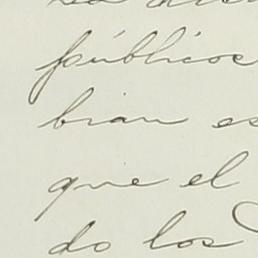 públicos
bian es
que el
do los